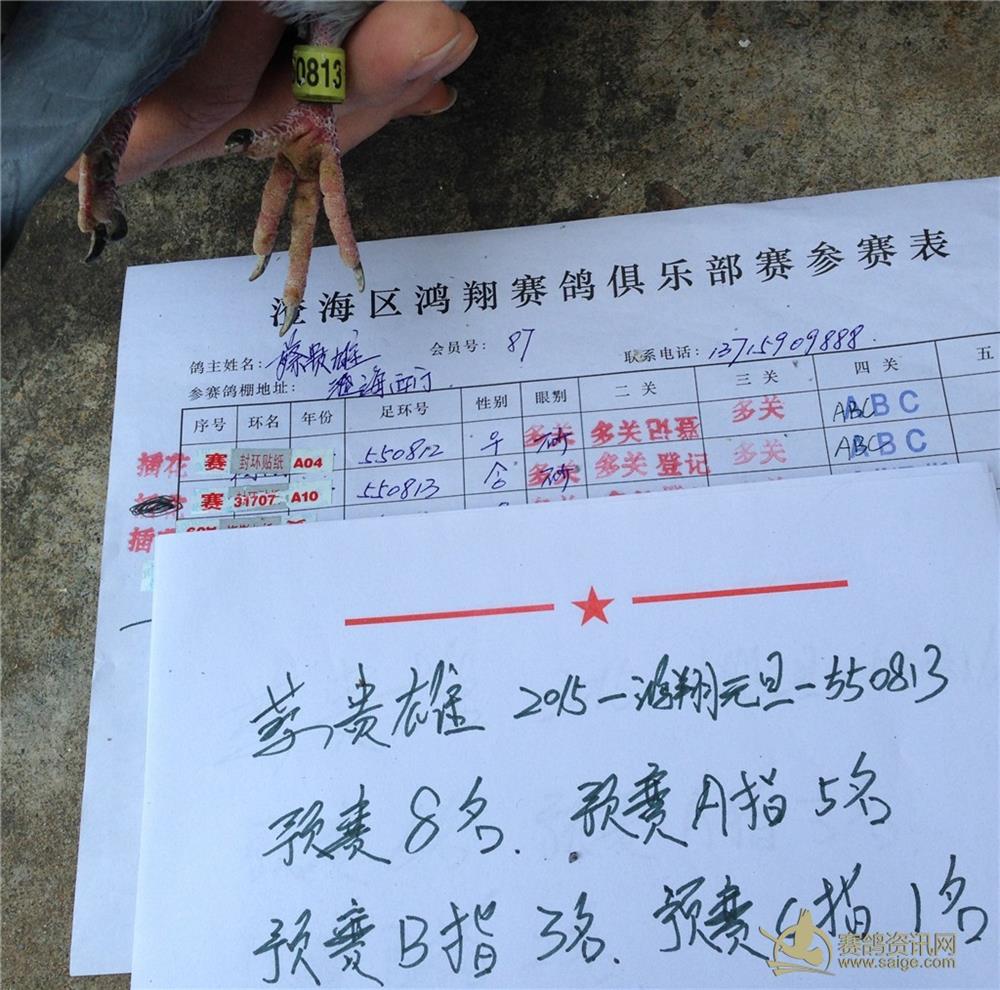 50813
澄海区鸿翔赛鸽俱乐部赛参赛表
鸽主姓名: 蔡贵雄 会员号: 87 联系电话: 13715909888
参赛鸽棚地址: 澄海西门
序号 环名 年份 足环号 性别 眼别 二关 三关 四关 五
插花 赛 封环贴纸 A04 550812 多关 砂 多关登记 多关 ABC ABC
赛 31707 A10 550813 多关 砂 多关登记 多关 ABC ABC
插
蔡贵雄 2015-鸿翔元旦-550813
预赛8名. 预赛A指5名
预赛B指3名. 预赛C指1名
赛鸽资讯网
www.saige.com